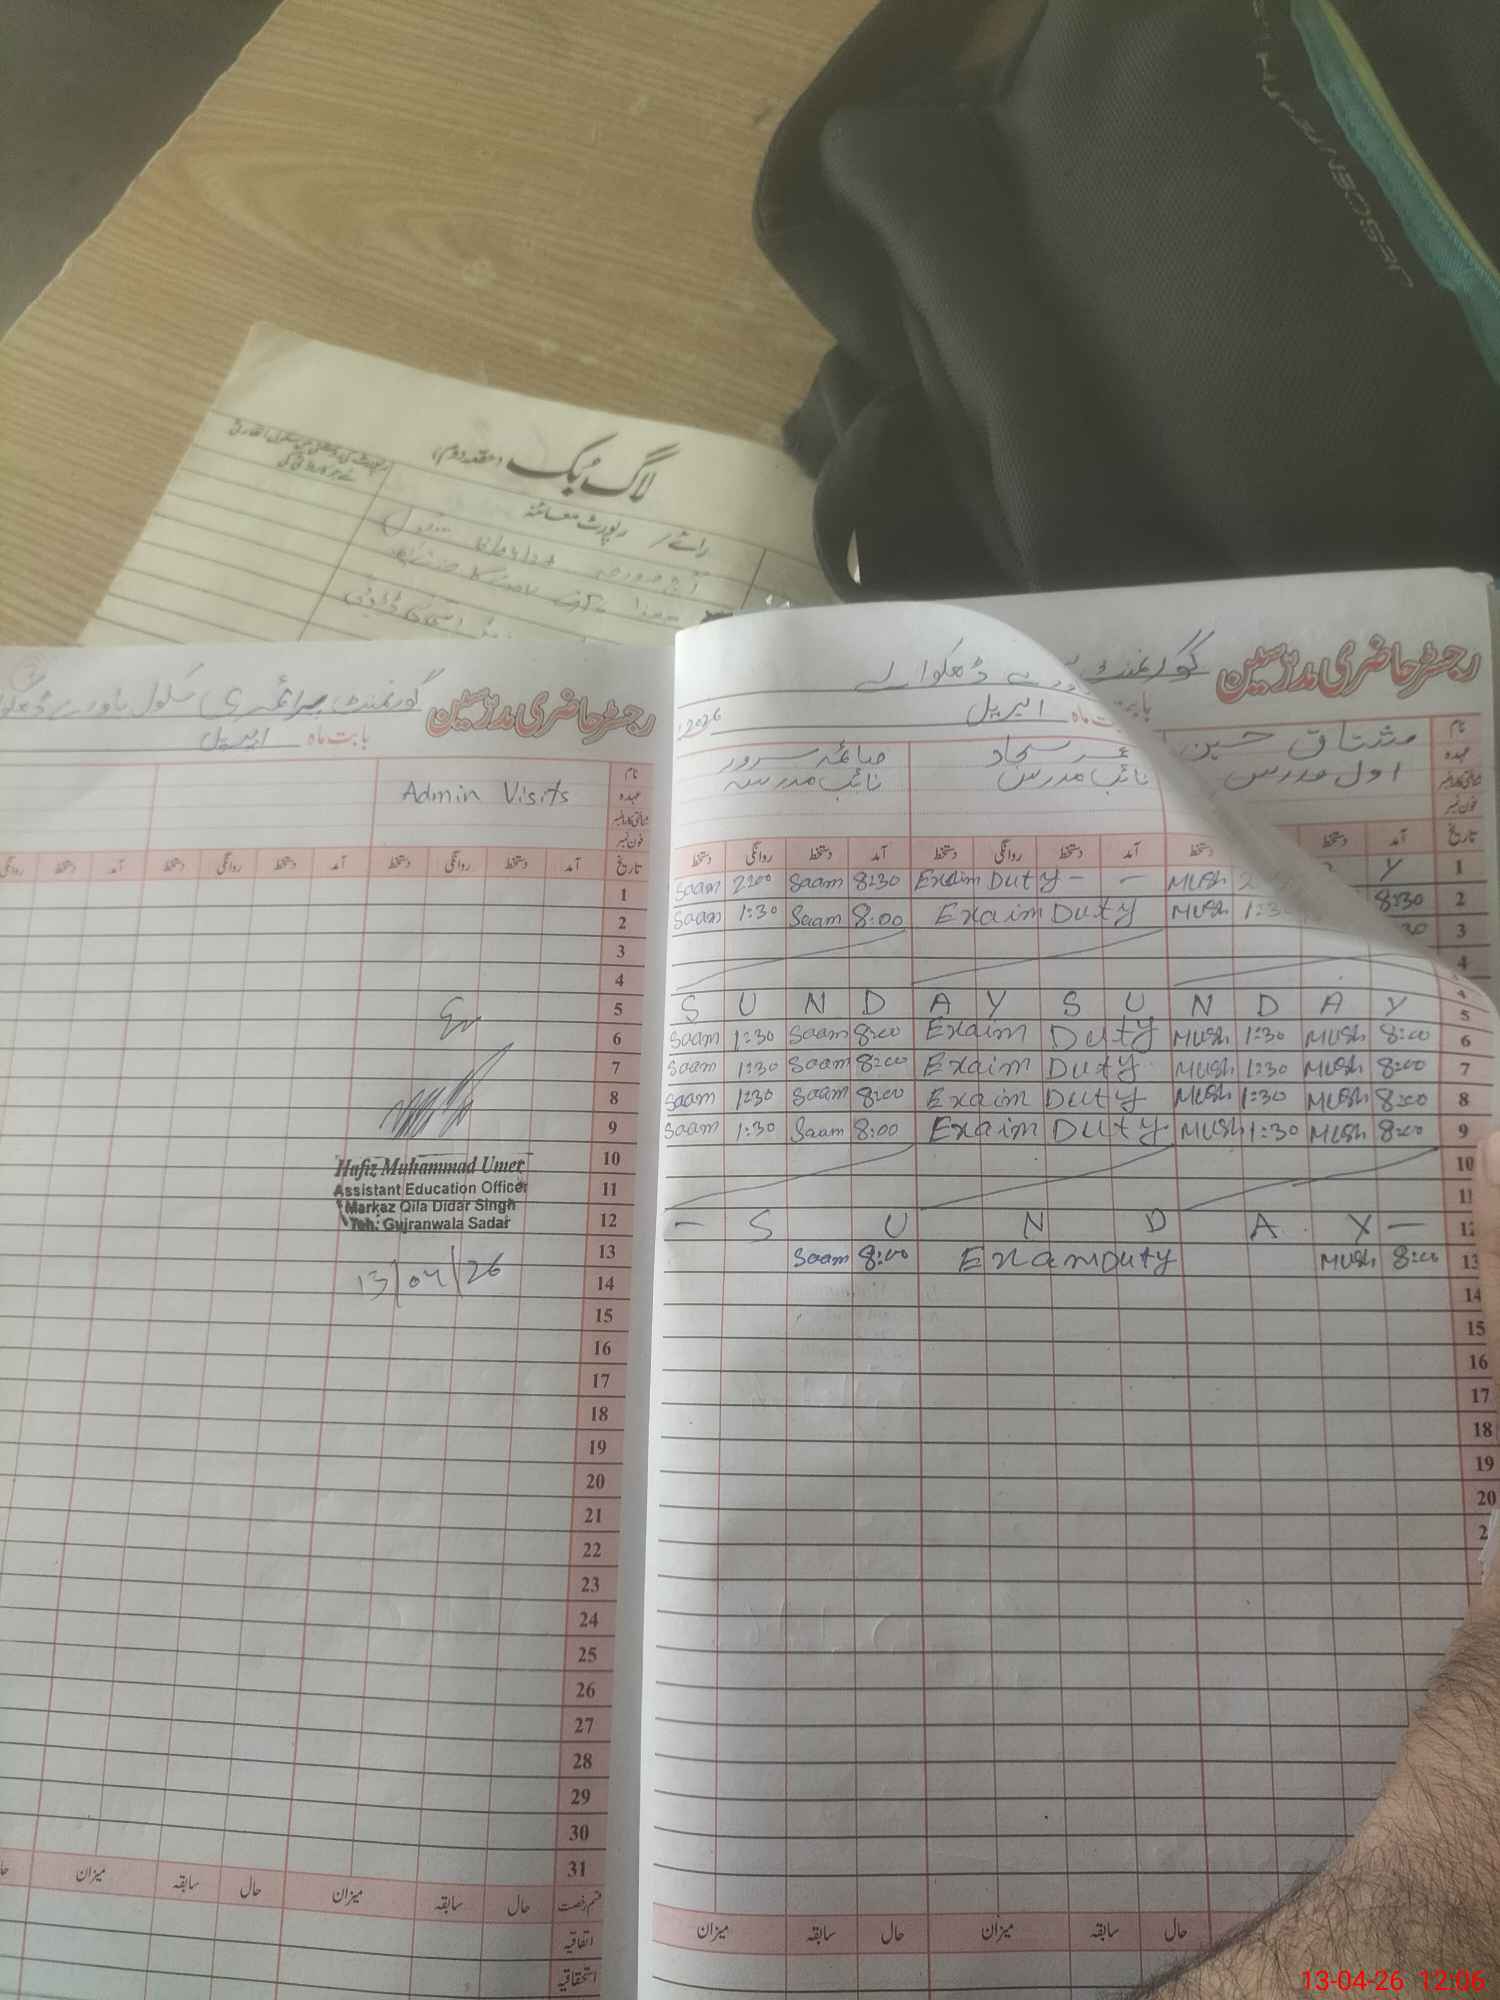 JEGSENTEAM
لاگ بُک (حصہ دوم)
رائے / رپورٹ معائنہ
رجسٹر حاضری مدرسین گورنمنٹ پرائمری سکول
بابت ماہ اپریل
نام
عہدہ
شناختی کارڈ نمبر
فون نمبر
Admin Visits
تاریخ آمد دستخط روانگی دستخط آمد دستخط روانگی دستخط آمد دستخط روانگی
1
2
3
4
5
6
7
8
9
10
11
12
13
14
15
16
17
18
19
20
21
22
23
24
25
26
27
28
29
30
31
Hafiz Muhammad Umer
Assistant Education Officer
Markaz Qila Didar Singh
Teh: Gujranwala Sadar
13/04/26
میزان سابقہ حال میزان سابقہ حال قسم رخصت
اتفاقیہ
استحقاقیہ
رجسٹر حاضری مدرسین گورنمنٹ
بابت ماہ اپریل 2026
نام مشتاق حسین صائمہ سرور
عہدہ اول مدرس نائب مدرس نائب مدرسہ
شناختی کارڈ نمبر
فون نمبر
تاریخ آمد دستخط دستخط آمد دستخط روانگی دستخط آمد دستخط روانگی دستخط
Saam 2:00 Saam 8:30 Exaim Duty - - Mush Y 1
Saam 1:30 Saam 8:00 Exaim Duty Mush 1:30 8:30 2
3
4
S U N D A Y S U N D A Y 5
Saam 1:30 Saam 8:00 Exaim Duty Mush 1:30 Mush 8:00 6
Saam 1:30 Saam 8:00 Exaim Duty Mush 1:30 Mush 8:00 7
Saam 1:30 Saam 8:00 Exaim Duty Mush 1:30 Mush 8:00 8
Saam 1:30 Saam 8:00 Exaim Duty Mush 1:30 Mush 8:00 9
10
11
- S U N D A Y - 12
Saam 8:00 Exam Duty Mush 8:00 13
14
15
16
17
18
19
20
میزان سابقہ حال میزان سابقہ حال
13-04-26 12:06